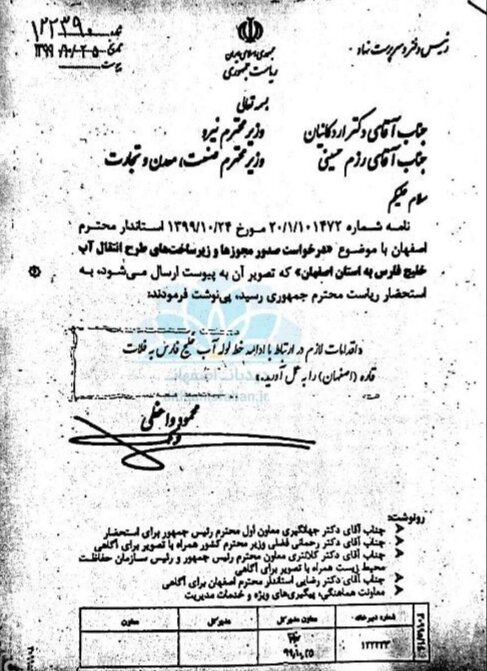 ۱۲۲۳۹۰
رئیس دفتر و سرپرست نهاد
جمهوری اسلامی ایران
ریاست جمهوری
بسمه تعالی
جناب آقای دکتر اردکانیان وزیر محترم نیرو
جناب آقای رزم حسینی وزیر محترم صنعت، معدن و تجارت
سلام علیکم
نامه شماره ۲۰/۱/۱۰۱۴۷۲ مورخ ۱۳۹۹/۱۰/۲۴ استاندار محترم
اصفهان با موضوع «درخواست صدور مجوزها و زیرساخت‌های طرح انتقال آب
خلیج فارس به استان اصفهان» که تصویر آن به پیوست ارسال می‌شود، به
استحضار ریاست محترم جمهوری رسید، پی‌نوشت فرمودند:
«اقدامات لازم در ارتباط با ادامه خط لوله آب خلیج فارس به فلات
قاره (اصفهان) را به عمل آورید.»
محمود واعظی
رونوشت:
جناب آقای دکتر جهانگیری معاون اول محترم رئیس جمهور برای استحضار
جناب آقای دکتر رحمانی فضلی وزیر محترم کشور همراه با تصویر برای آگاهی
جناب آقای دکتر کلانتری معاون محترم رئیس جمهور و رئیس سازمان حفاظت
محیط زیست همراه با تصویر برای آگاهی
جناب آقای دکتر رضایی استاندار محترم اصفهان برای آگاهی
معاونت هماهنگی، پیگیری‌های ویژه و خدمات مدیریت
شماره دبیرخانه معاون مدیرکل مدیرکل معاون
۱۲۲۲۲۳
۹۹/۱۰/۲۵